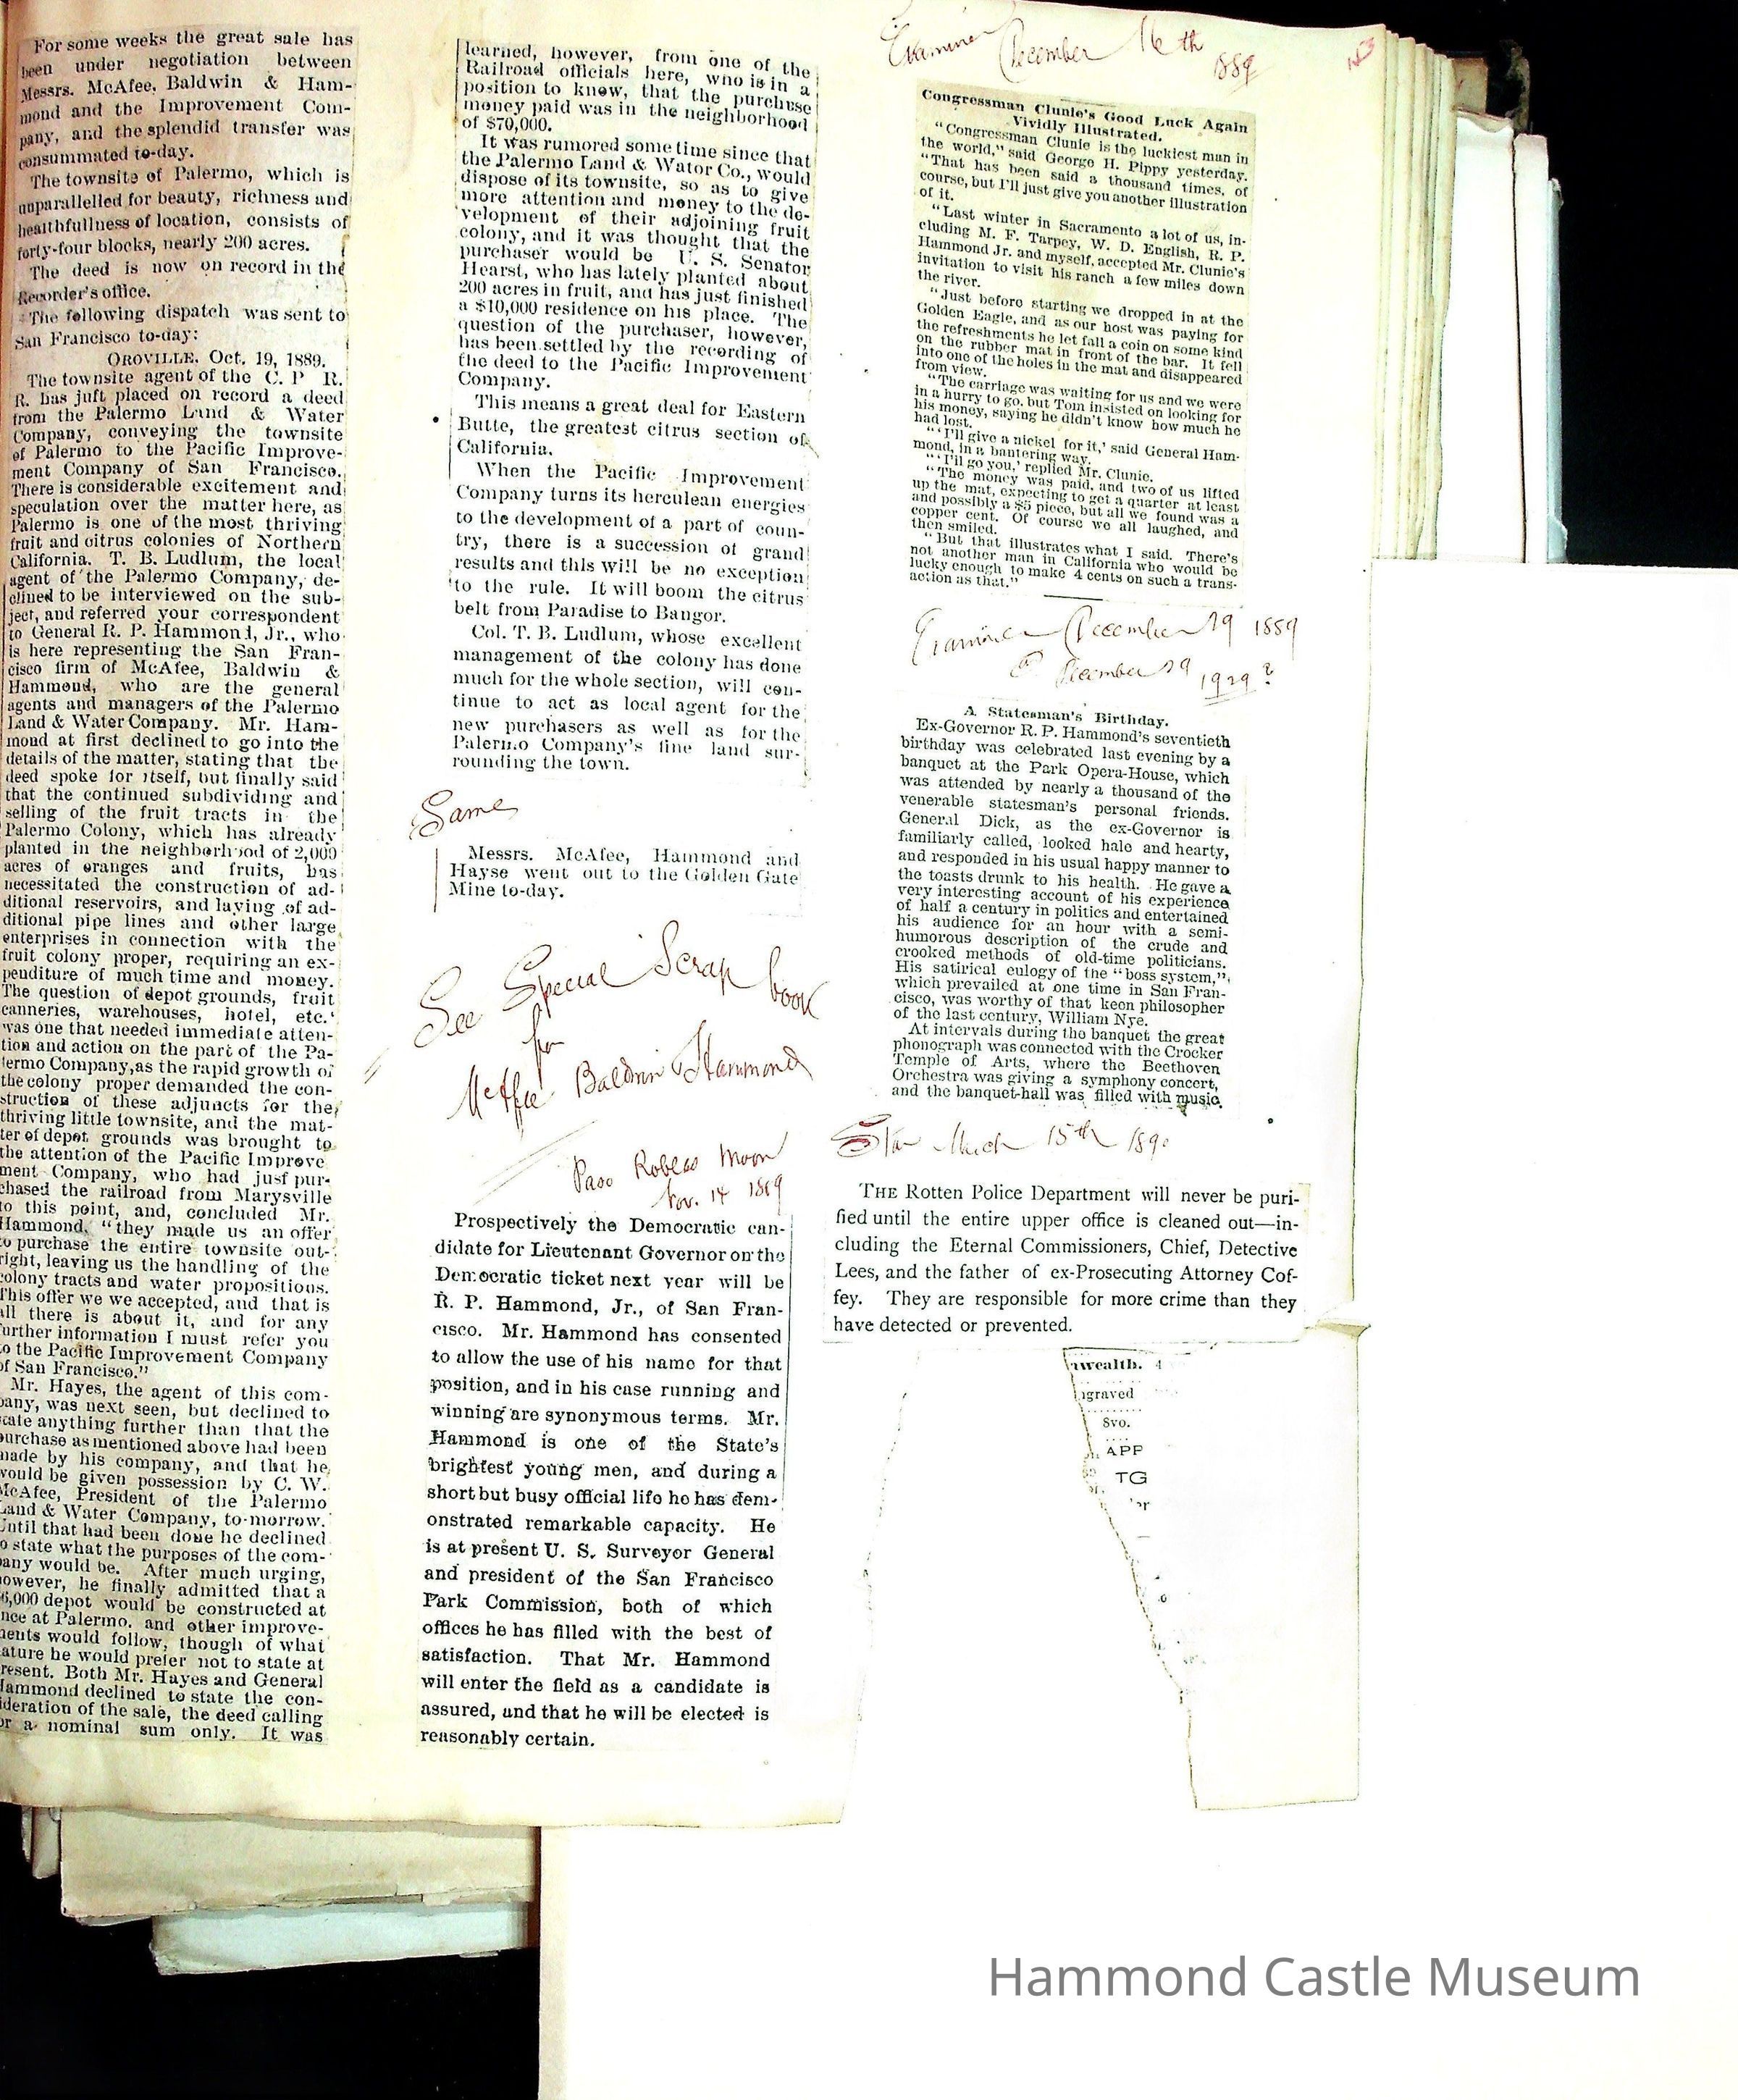 For some weeks the great sale has
been under negotiation between
Messrs. McAfee, Baldwin & Ham-
mond and the Improvement Com-
pany, and the splendid transfer was
consummated to-day.
The townsite of Palermo, which is
unparallelled for beauty, richness and
healthfullness of location, consists of
forty-four blocks, nearly 200 acres.
The deed is now on record in the
Recorder's office.
The following dispatch was sent to
San Francisco to-day:
OROVILLE, Oct. 19, 1889.
The townsite agent of the C. P R.
R. has juft placed on record a deed
from the Palermo Land & Water
Company, conveying the townsite
of Palermo to the Pacific Improve-
ment Company of San Francisco.
There is considerable excitement and
speculation over the matter here, as
Palermo is one of the most thriving
fruit and citrus colonies of Northern
California. T. B. Ludlum, the local
agent of the Palermo Company, de-
clined to be interviewed on the sub-
ject, and referred your correspondent
to General R. P. Hammond, Jr., who
is here representing the San Fran-
cisco firm of McAfee, Baldwin &
Hammond, who are the general
agents and managers of the Palermo
Land & Water Company. Mr. Ham-
mond at first declined to go into the
details of the matter, stating that the
deed spoke for itself, but finally said
that the continued subdividing and
selling of the fruit tracts in the
Palermo Colony, which has already
planted in the neighborhood of 2,000
acres of oranges and fruits, has
necessitated the construction of ad-
ditional reservoirs, and laying of ad-
ditional pipe lines and other large
enterprises in connection with the
fruit colony proper, requiring an ex-
penditure of much time and money.
The question of depot grounds, fruit
canneries, warehouses, hotel, etc.
was one that needed immediate atten-
tion and action on the part of the Pa-
lermo Company,as the rapid growth of
the colony proper demanded the con-
struction of these adjuncts for the
thriving little townsite, and the mat-
ter of depot grounds was brought to
the attention of the Pacific Improve
ment Company, who had jusf pur-
chased the railroad from Marysville
to this point, and, concluded Mr.
Hammond, "they made us an offer
to purchase the entire townsite out-
right, leaving us the handling of the
colony tracts and water propositions.
This offer we we accepted, and that is
all there is about it, and for any
further information I must refer you
to the Pacific Improvement Company
of San Francisco."
Mr. Hayes, the agent of this com-
pany, was next seen, but declined to
state anything further than that the
purchase as mentioned above had been
made by his company, and that he
would be given possession by C. W.
McAfee, President of the Palermo
Land & Water Company, to-morrow.
Until that had been done he declined
to state what the purposes of the com-
pany would be. After much urging,
however, he finally admitted that a
6,000 depot would be constructed at
nce at Palermo, and other improve-
ments would follow, though of what
nature he would prefer not to state at
present. Both Mr. Hayes and General
Hammond declined to state the con-
sideration of the sale, the deed calling
or a nominal sum only. It was
learned, however, from one of the
Railroad officials here, who is in a
position to know, that the purchase
money paid was in the neighborhood
of $70,000.
It was rumored some time since that
the Palermo Land & Wator Co., would
dispose of its townsite, so as to give
more attention and money to the de-
velopment of their adjoining fruit
colony, and it was thought that the
purchaser would be U. S. Senator
Hearst, who has lately planted about
200 acres in fruit, and has just finished
a $10,000 residence on his place. The
question of the purchaser, however,
has been settled by the recording of
the deed to the Pacific Improvement
Company.
This means a great deal for Eastern
Butte, the greatest citrus section of
California.
When the Pacific Improvement
Company turns its herculean energies
to the development of a part of coun-
try, there is a succession of grand
results and this will be no exception
to the rule. It will boom the citrus
belt from Paradise to Bangor.
Col. T. B. Ludlum, whose excellent
management of the colony has done
much for the whole section, will con-
tinue to act as local agent for the
new purchasers as well as for the
Palermo Company's fine land sur-
rounding the town.
Same
Messrs. McAfee, Hammond and
Hayse went out to the Golden Gate
Mine to-day.
See Special Scrap book
for
McAfee Baldwin & Hammond
Paso Robles Moon
Nov. 14 1889
Prospectively the Democratic can-
didate for Lieutenant Governor on the
Democratic ticket next year will be
R. P. Hammond, Jr., of San Fran-
cisco. Mr. Hammond has consented
to allow the use of his name for that
position, and in his case running and
winning are synonymous terms. Mr.
Hammond is one of the State's
brightest young men, and during a
short but busy official life he has dem-
onstrated remarkable capacity. He
is at present U. S. Surveyor General
and president of the San Francisco
Park Commission, both of which
offices he has filled with the best of
satisfaction. That Mr. Hammond
will enter the field as a candidate is
assured, and that he will be elected is
reasonably certain.
Examiner December 16th
1889
153
Congressman Clunie's Good Luck Again
Vividly Illustrated.
"Congressman Clunie is the luckiest man in
the world," said George H. Pippy yesterday.
"That has been said a thousand times, of
course, but I'll just give you another illustration
of it.
"Last winter in Sacramento a lot of us, in-
cluding M. F. Tarpey, W. D. English, R. P.
Hammond Jr. and myself, accepted Mr. Clunie's
invitation to visit his ranch a few miles down
the river.
"Just before starting we dropped in at the
Golden Eagle, and as our host was paying for
the refreshments he let fall a coin on some kind
on the rubber mat in front of the bar. It fell
into one of the holes in the mat and disappeared
from view.
"The carriage was waiting for us and we were
in a hurry to go, but Tom insisted on looking for
his money, saying he didn't know how much he
had lost.
"'I'll give a nickel for it,' said General Ham-
mond, in a bantering way.
"'I'll go you,' replied Mr. Clunie.
"The money was paid, and two of us lifted
up the mat, expecting to get a quarter at least
and possibly a $5 piece, but all we found was a
copper cent. Of course we all laughed, and
then smiled.
"But that illustrates what I said. There's
not another man in California who would be
lucky enough to make 4 cents on such a trans-
action as that."
Examiner December 29 1889
December 29
1929?
A Statesman's Birthday.
Ex-Governor R. P. Hammond's seventieth
birthday was celebrated last evening by a
banquet at the Park Opera-House, which
was attended by nearly a thousand of the
venerable statesman's personal friends.
General Dick, as the ex-Governor is
familiarly called, looked hale and hearty,
and responded in his usual happy manner to
the toasts drunk to his health. He gave a
very interesting account of his experience
of half a century in politics and entertained
his audience for an hour with a semi-
humorous description of the crude and
crooked methods of old-time politicians.
His satirical eulogy of the "boss system,"
which prevailed at one time in San Fran-
cisco, was worthy of that keen philosopher
of the last century, William Nye.
At intervals during the banquet the great
phonograph was connected with the Crocker
Temple of Arts, where the Beethoven
Orchestra was giving a symphony concert,
and the banquet-hall was filled with music.
Star March 15th 1890
THE Rotten Police Department will never be puri-
fied until the entire upper office is cleaned out—in-
cluding the Eternal Commissioners, Chief, Detective
Lees, and the father of ex-Prosecuting Attorney Cof-
fey. They are responsible for more crime than they
have detected or prevented.
nwealth. 4
ngraved
8vo.
APP
TG
Hammond Castle Museum